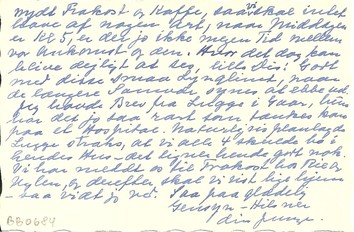 nydt Frokost og Kaffe, saa vi skal intet
have af nogen Art, naar Middagen
er Kl 5, er der jo ikke megen Tid mellem
vor Ankomst og den. Hvor det dog kan
blive dejligt at se Jer, lille Dis! Godt
med disse smaa Lyspunkter, naar
de længere Samvær synes at ebbe ud.
Jeg havde Brev fra Lugge i Gaar, hun
har det jo saa rart som tænkes kan
paa et Hospital. Naturligvis planlagde
Lugge straks, at vi alle 4 skulde bo i
hendes Hus - det ligner hende godt nok.
Vi har meldt os til Frokost hos
Uglen, og derefter skal vi vist lige hjem
- saa vidt jeg ved. Saa paa glædeligt
Gensyn - Hilsner
din Junge.
BB0684